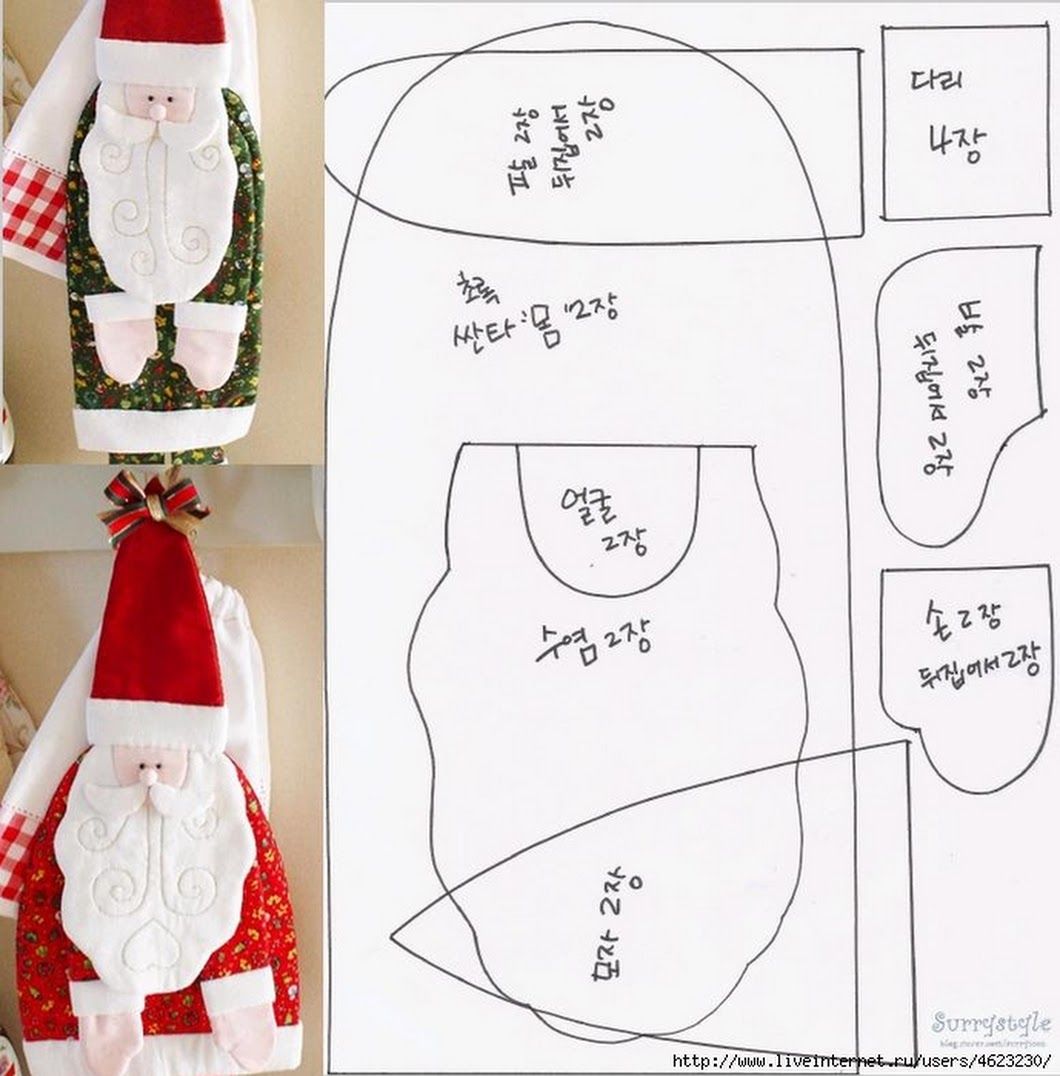 팔 2장
뒤집어서 2장
다리
4장
초록
싼타 "몸" 2장
발 2장
뒤집어서 2장
얼굴
2장
수염 2장
손 2장
뒤집어서 2장
모자 2장
Surrystyle
http://www.liveinternet.ru/users/4623230/